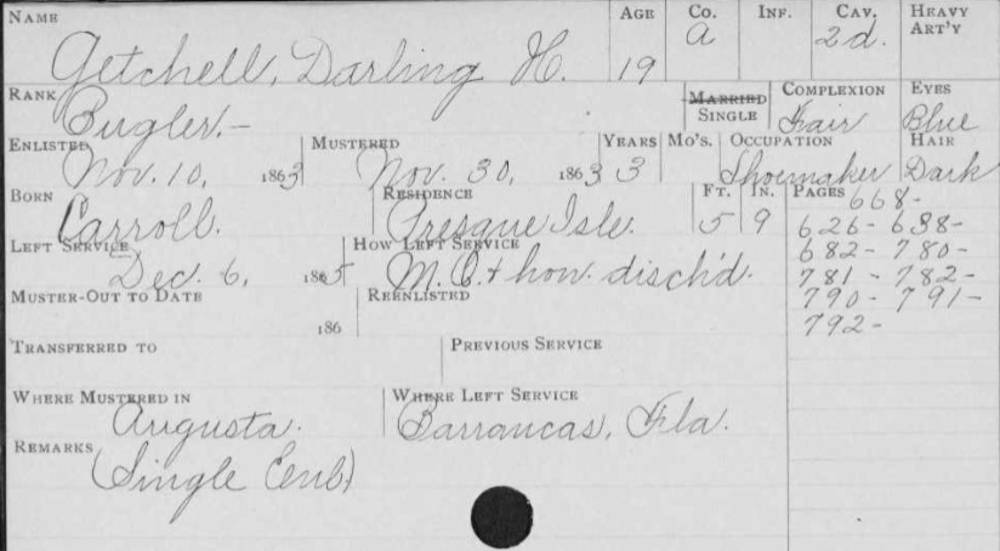 NAME AGE CO. INF. CAV. HEAVY ART'Y
Getchell, Darling H. 19 A 2d.
RANK MARRIED SINGLE COMPLEXION EYES
Bugler.- Fair Blue
ENLISTED MUSTERED YEARS MO'S. OCCUPATION HAIR
Nov. 10, 1863 Nov. 30, 1863 3 Shoemaker Dark
BORN RESIDENCE FT. IN. PAGES 668-
Carroll. Presque Isle. 5 9 626- 638-
LEFT SERVICE HOW LEFT SERVICE 682- 780-
Dec. 6, 1865 M.O. + hon. disch'd. 781- 782-
MUSTER-OUT TO DATE REENLISTED 790- 791-
186 792-
TRANSFERRED TO PREVIOUS SERVICE
WHERE MUSTERED IN WHERE LEFT SERVICE
Augusta. Barrancas, Fla.
REMARKS
(Single Enl)